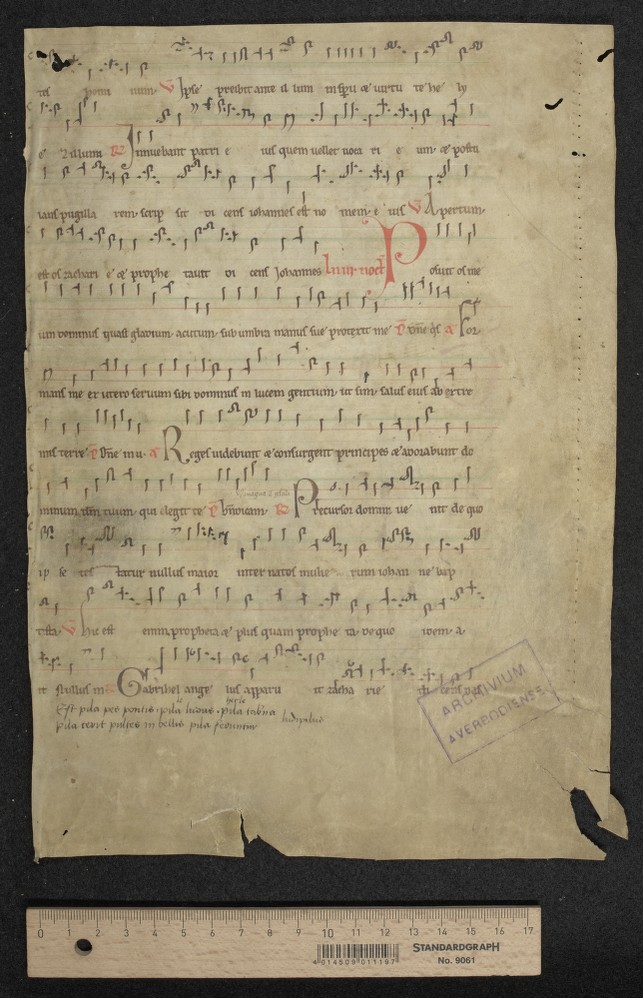 nis hom inum V Ipse preibit ante il lum in spu et virtu te he ly
e Illum R Innuebant patri e ius quem vellet voca ri e um et postu
lans pugilla rem scrip sit di cens iohannes est no men e ius V Apertum
est os zachari e et prophe tavit di cens Johannes In iij noct Posuit os me
um dominus quasi gladium acutum sub umbra manus sue protexit me Dne a For
mans me ex utero servum sibi dominus in lucem gentium ut sim salus eius ab extre
mis terre p Dne in u a Reges videbunt et consurgent principes et adorabunt do
minum tuum qui elegit te R Precursor domini ve nit de quo
ip se tes tatur nullus maior inter natos mulie rum iohan ne bap
tista V Hic est enim propheta et plus quam prophe ta de quo idem a
it Nullus in Gabrihel ange lus apparu it zacha rie
Est pila pes pontis pila ludus pila taberna
pila terit pultes in bellis pila feruntur
ARCHIVIUM
AVERBODIENSE
0 1 2 3 4 5 6 7 8 9 10 11 12 13 14 15 16 17
STANDARDGRAPH
4 014509 011197
No. 9061